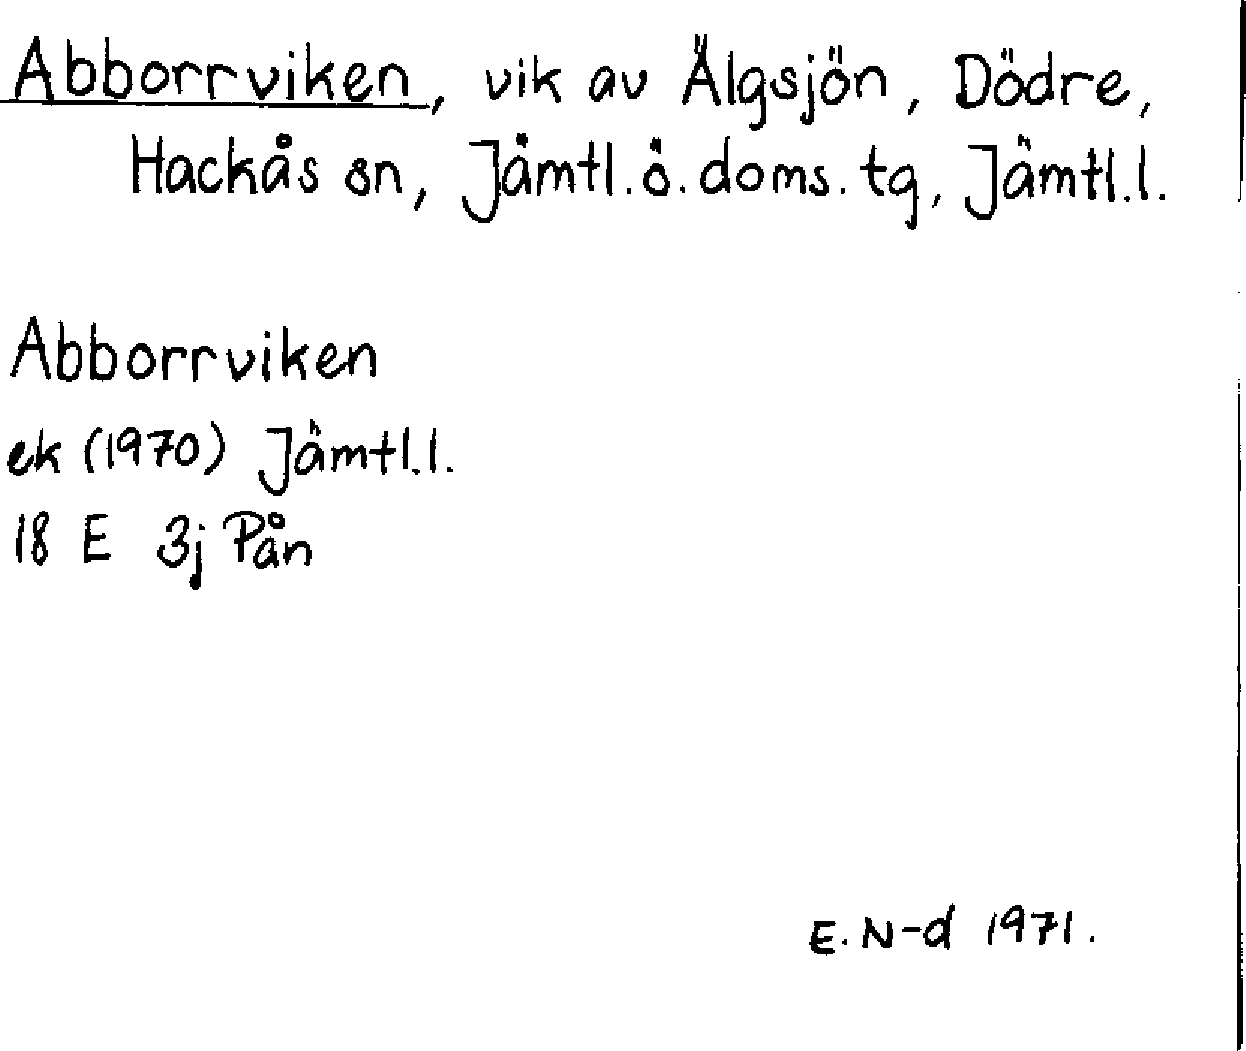 Abborrviken, vik av Älgsjön, Dödre,
Hackås sn, Jämtl.ö.doms.tg, Jämtl.l.
Abborrviken
ek (1970) Jämtl.l.
18 E 3j Pån
E.N-d 1971.